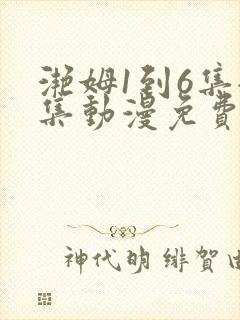 瀨姆1到6集
集動漫免費
神代明 緋賀由